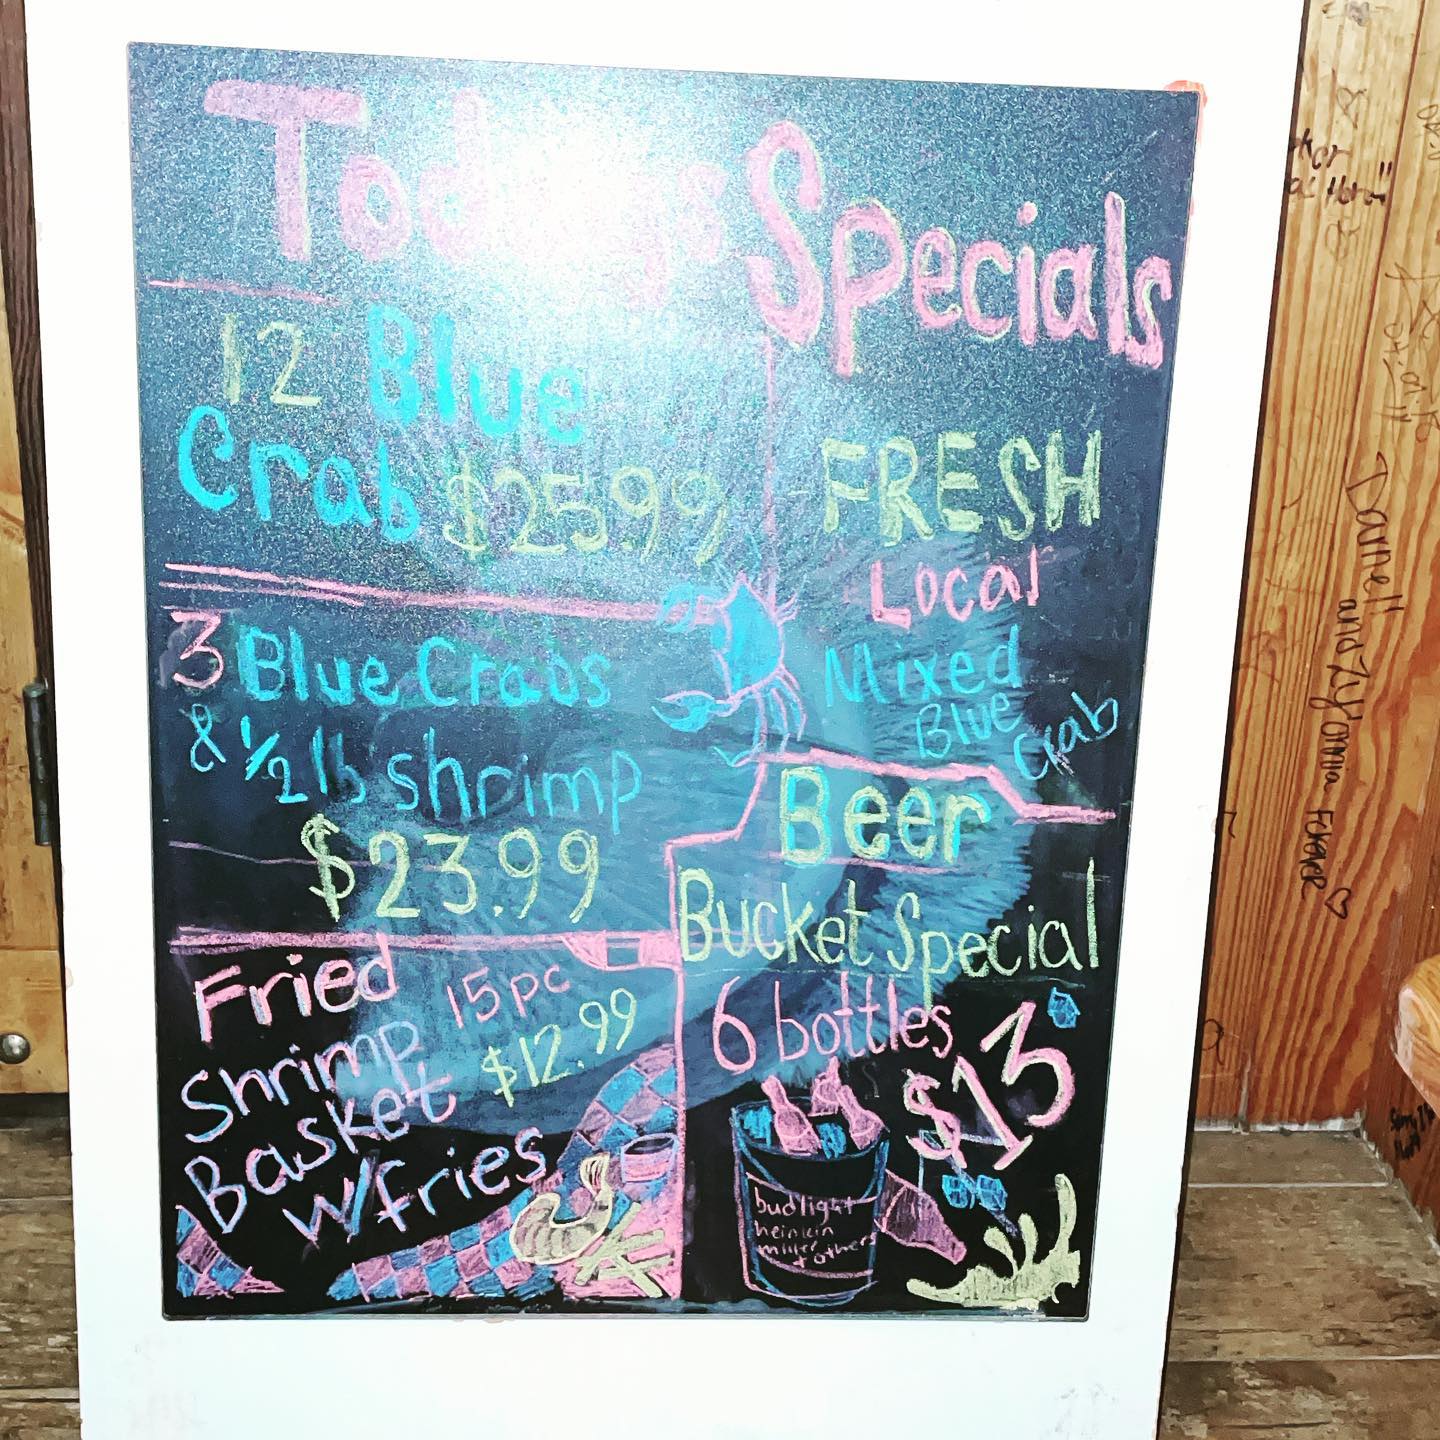 Todays Specials
12 Blue
Crab $25.99
3 Blue Crabs
& 1/2 lb shrimp
$23.99
Fried
Shrimp
Basket
W/fries
15pc
$12.99
FRESH
Local
Mixed
Blue
Crab
Beer
Bucket Special
6 bottles
$13
budlight
heinkin
miller
+ others
Darnell
and Zyonnia FOREVER